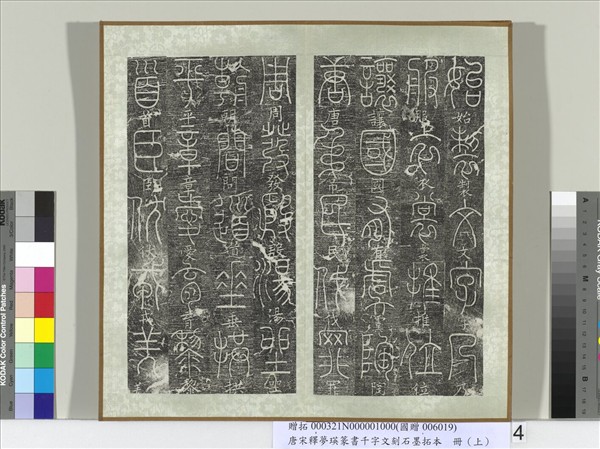 始制文字乃
服衣裳推位
讓國有虞陶
唐弔民伐罪
周發殷湯坐
朝問道垂拱
平章愛育黎
首臣伏戎羌
Kodak
KODAK Color Control Patches
A
M
B
KODAK Gray Scale
贈拓 000321N000001000(國贈 006019)
唐宋釋夢瑛篆書千字文刻石墨拓本 冊（上）
4